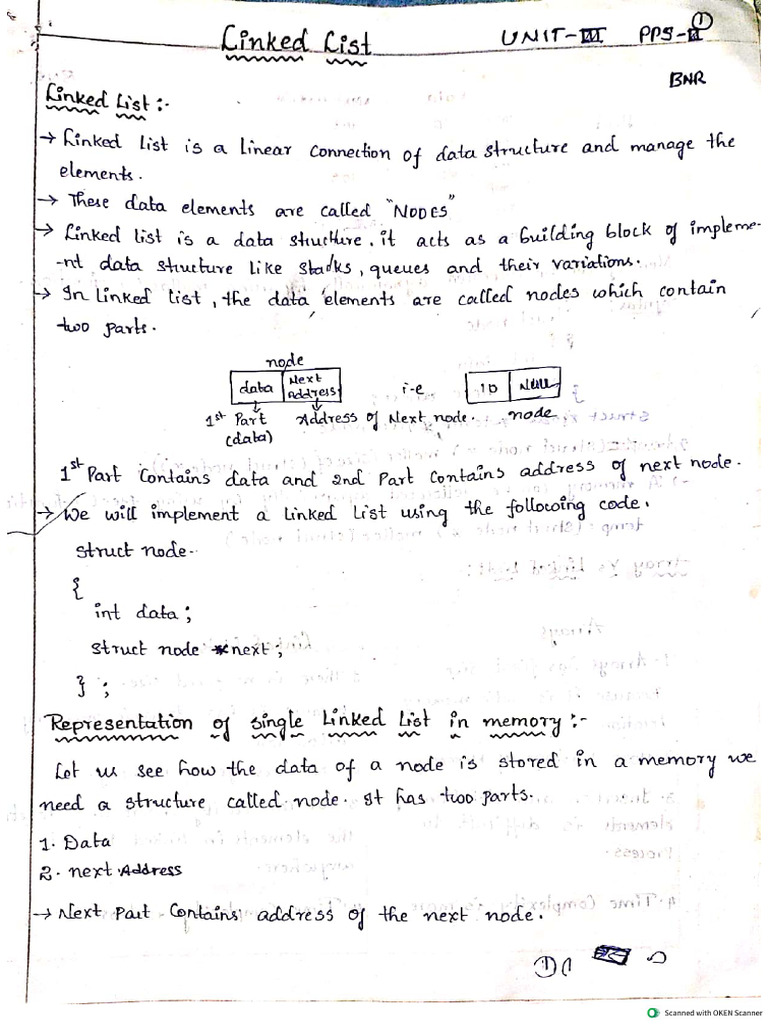 Linked List UNIT-III PPS-II ①
BNR
Linked List :-
→ Linked List is a Linear Connection of data structure and manage the
elements.
→ These data elements are called "NODES"
→ Linked list is a data structure. it acts as a building block of impleme-
-nt data structure like stacks, queues and their variations.
→ In linked list, the data elements are called nodes which contain
two parts.
node
data Next Address i-e 10 NULL
1st Part (data) Address of Next node. node
1st Part Contains data and 2nd Part Contains address of next node.
→ We will implement a Linked List using the following code.
struct node
{
int data;
struct node *next;
};
Representation of single Linked List in memory :-
Let us see how the data of a node is stored in a memory we
need a structure called node. It has two parts.
1. Data
2. next Address
→ Next Part Contains address of the next node.
Scanned with OKEN Scanner